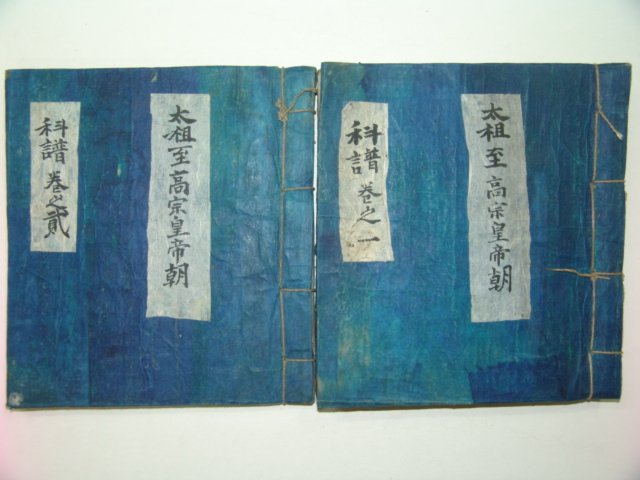 太祖至高宗皇帝朝
科譜 卷之一
太祖至高宗皇帝朝
科譜 卷之貳